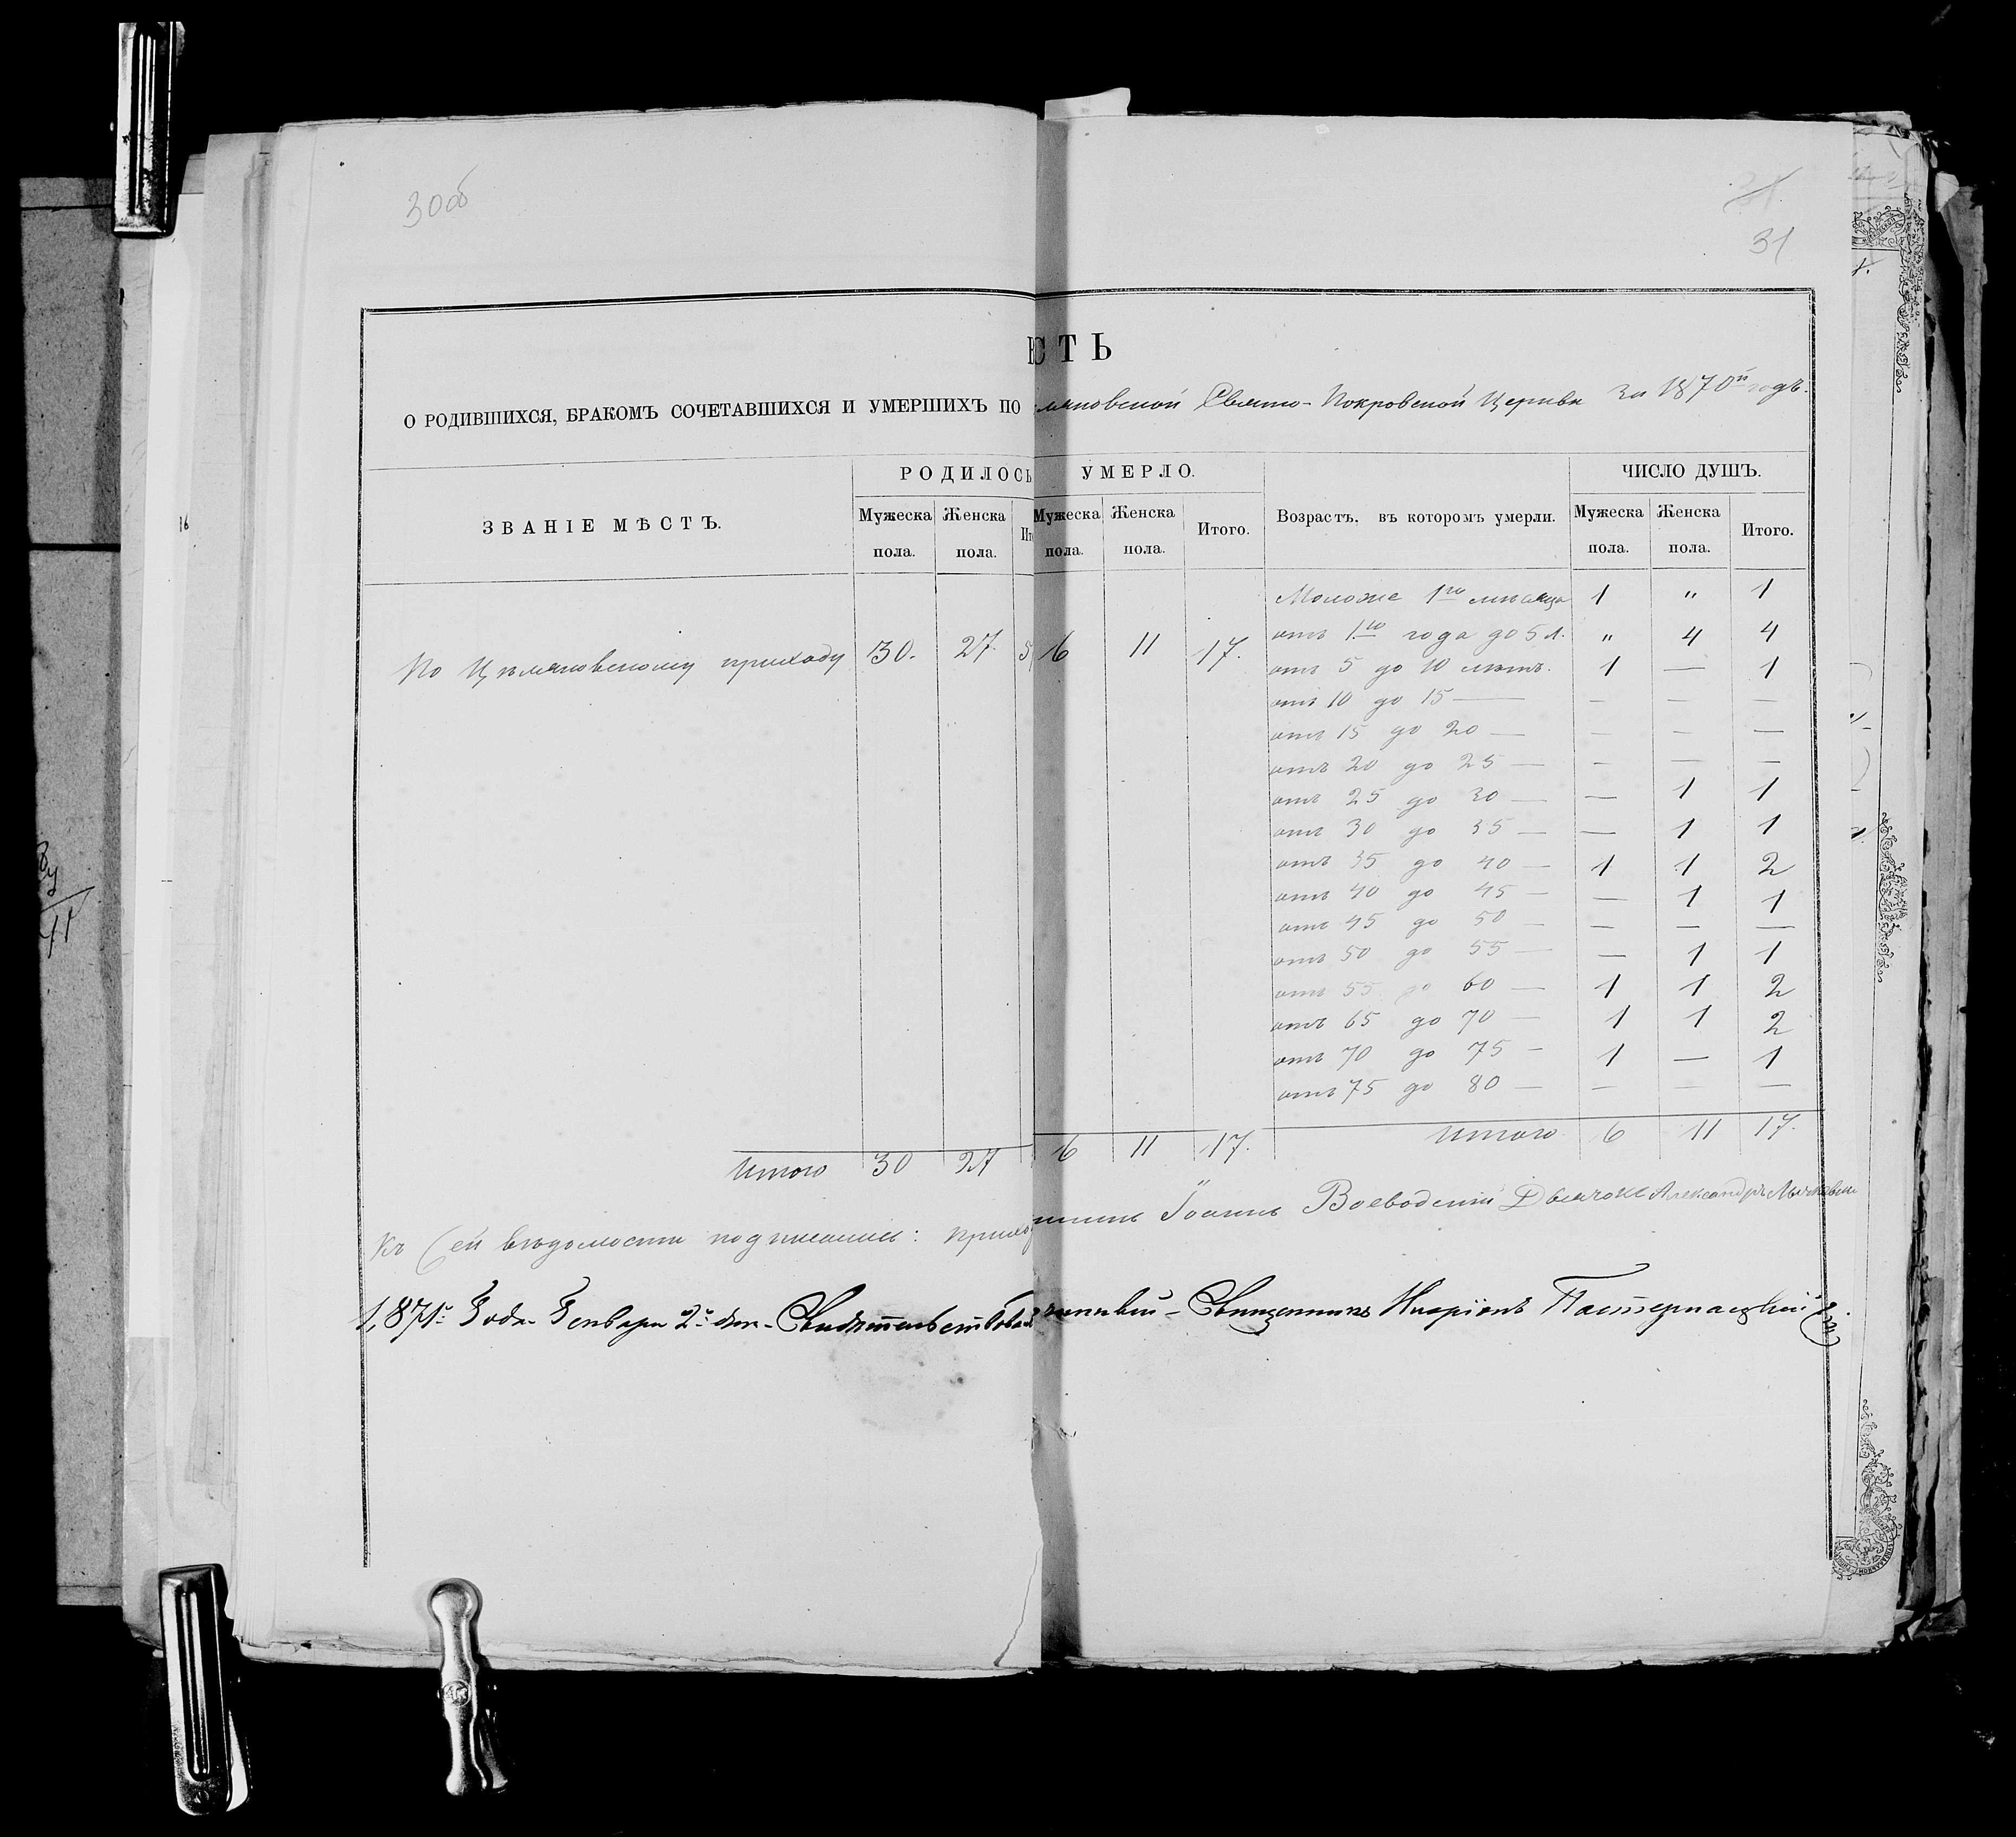 30об
31
СТЬ
О РОДИВШИХСЯ, БРАКОМЪ СОЧЕТАВШИХСЯ И УМЕРШИХЪ ПО мяновской Свято-Покровской Церкви за 1870й годъ.
ЗВАНІЕ МѢСТЪ. РОДИЛОСЬ УМЕРЛО. Возрастъ, въ которомъ умерли. ЧИСЛО ДУШЪ.
Мужеска пола. Женска пола. Ит Мужеска пола. Женска пола. Итого. Мужеска пола. Женска пола. Итого.
По Цѣмяновскому приходу 30. 27. 5 6 11 17.
Моложе 1го мѣсяца 1 " 1
отъ 1го года до 5 л. " 4 4
отъ 5 до 10 лѣтъ. 1 — 1
отъ 10 до 15 — — — —
отъ 15 до 20 — — — —
отъ 20 до 25 — — — —
отъ 25 до 30 — — 1 1
отъ 30 до 35 — — 1 1
отъ 35 до 40 — 1 1 2
отъ 40 до 45 — — 1 1
отъ 45 до 50 — — — —
отъ 50 до 55 — — 1 1
отъ 55 до 60 — 1 1 2
отъ 65 до 70 — 1 1 2
отъ 70 до 75 — 1 — 1
отъ 75 до 80 — — — —
Итого 30 27 6 11 17. Итого 6 11 17.
Къ сей вѣдомости подписались: прихо Іоаннъ Воеводскій Дьячокъ Александръ
1871го Года Генваря 2го дня Свидѣтельствовал Священникъ Иларіонъ Пастернацкій